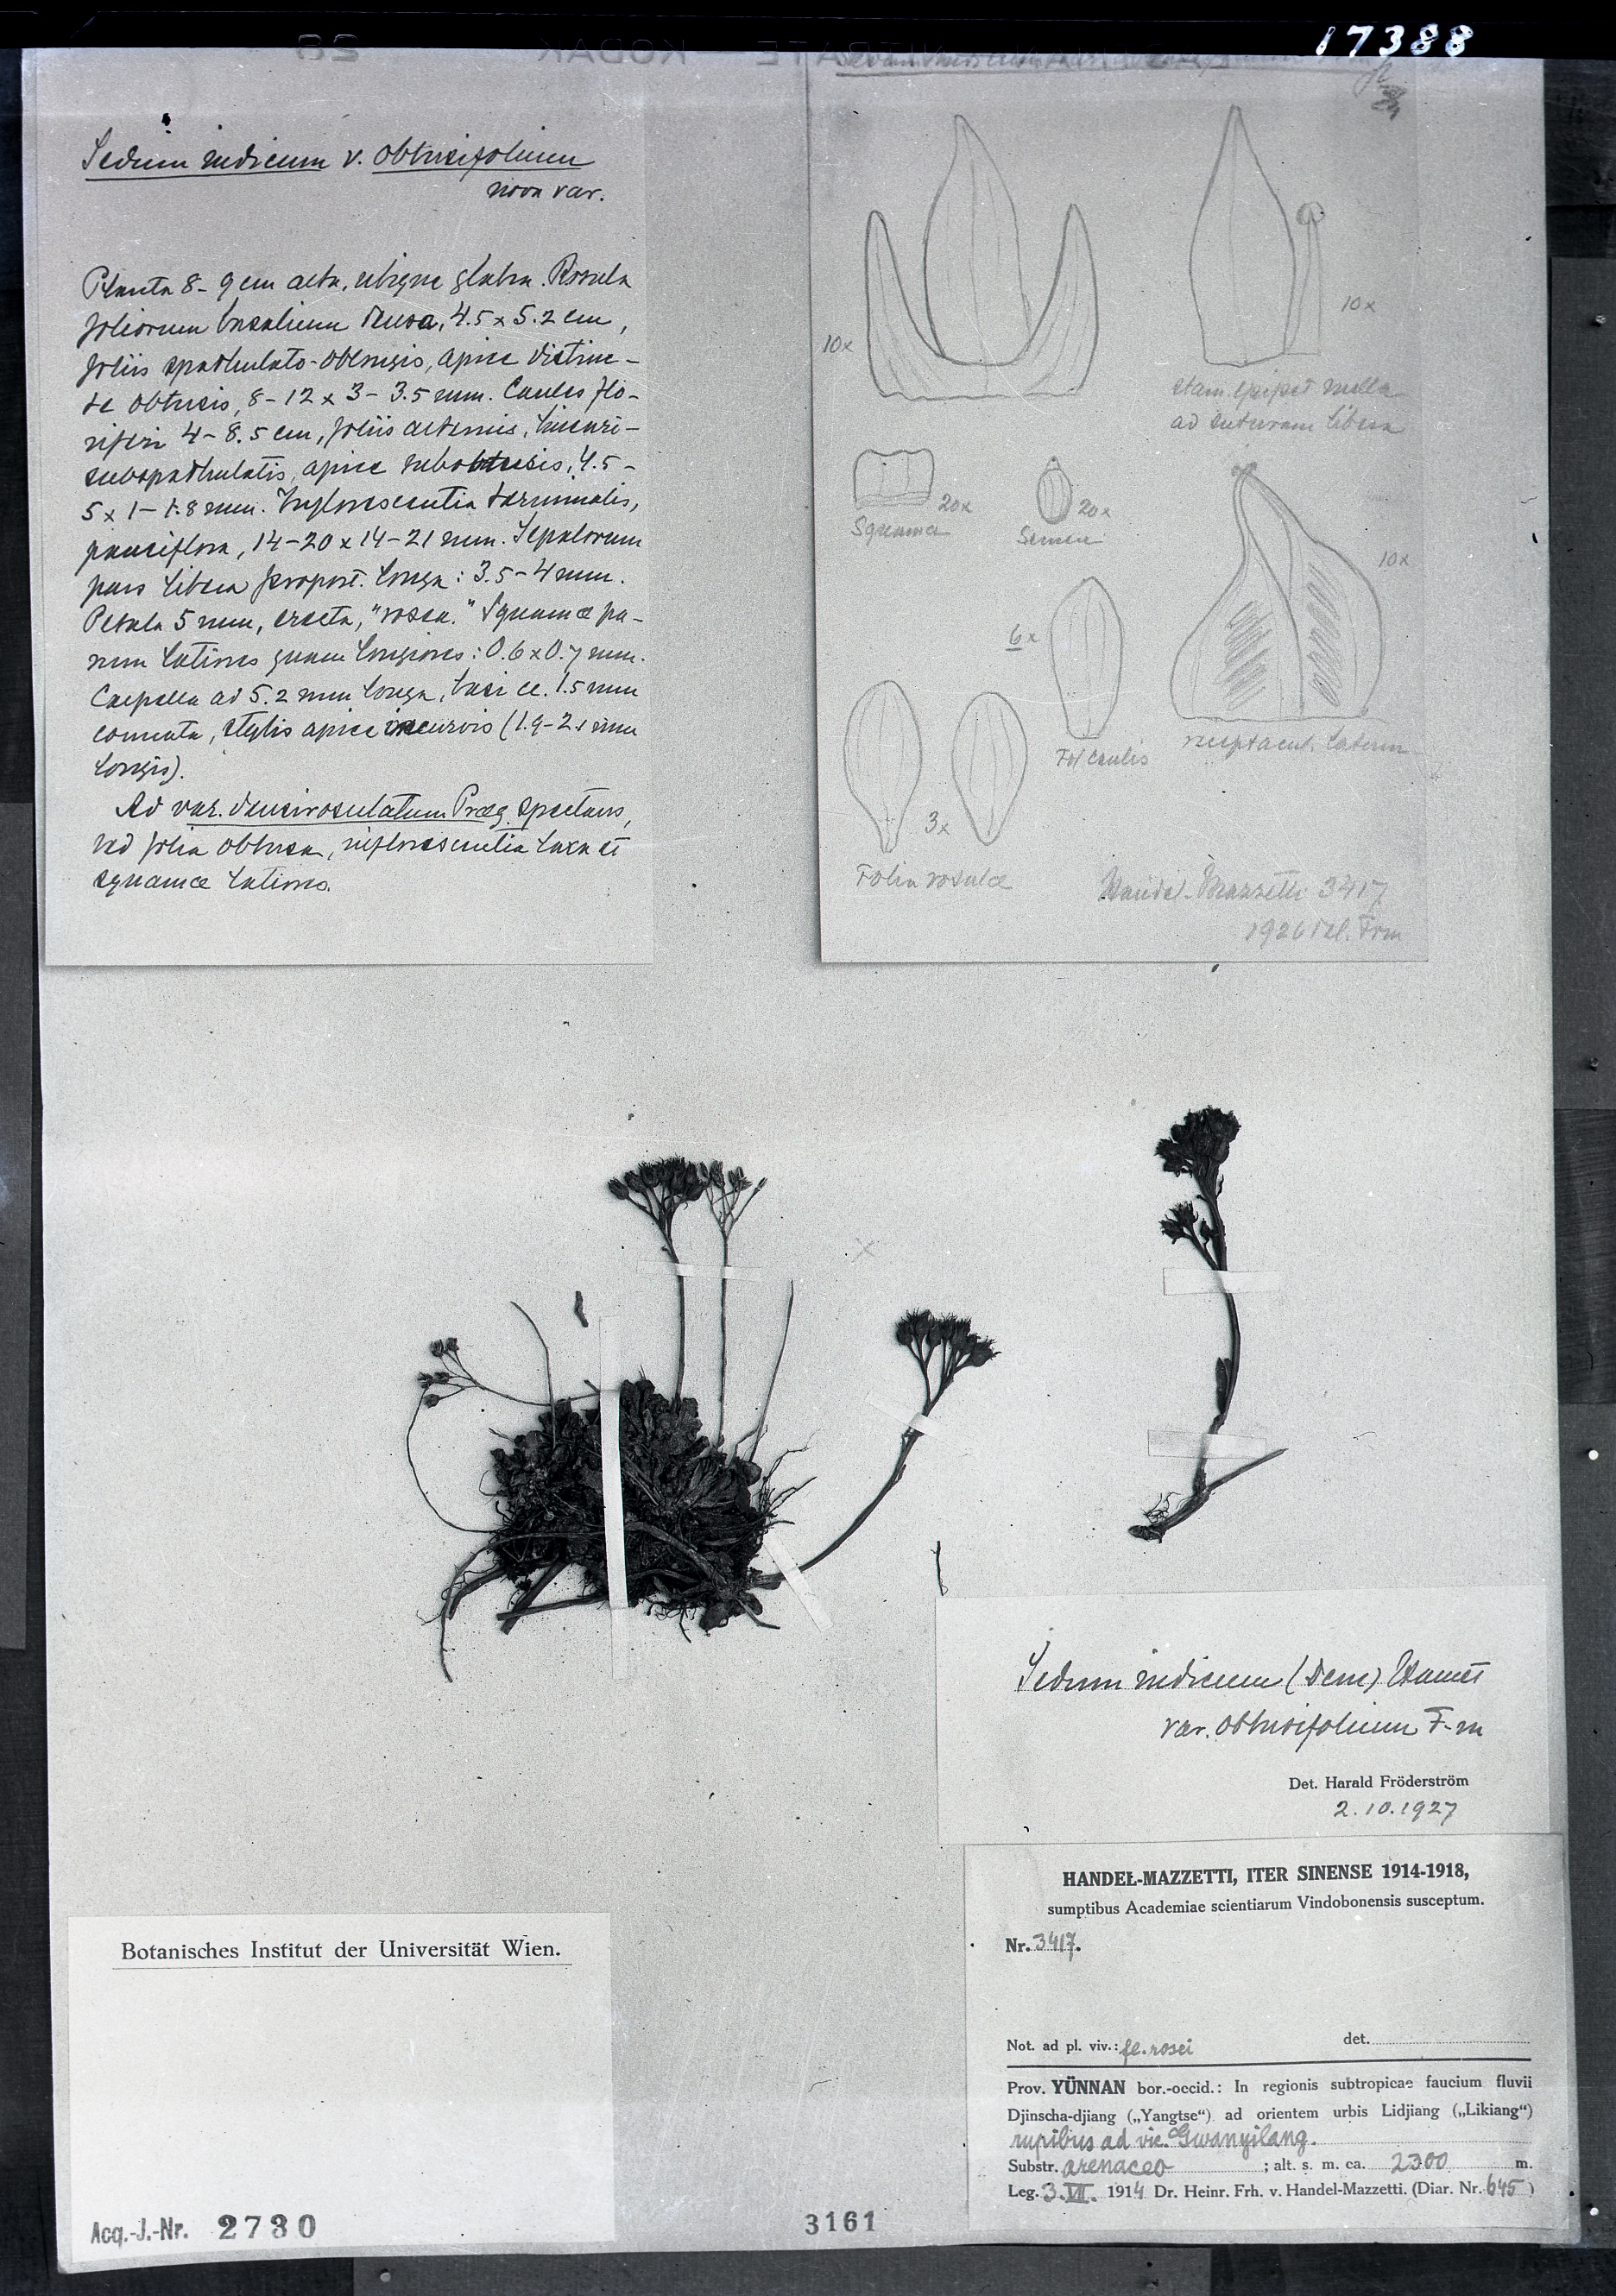 17388
Sedum indicum v. obtusifolium
nova var.
Planta 8-9 cm alta, ubique glabra. Rosula
foliorum basalium densa, 4.5 x 5.2 cm,
foliis spathulato-oblongis, apice distinc-
te obtusis, 8-12 x 3-3.5 mm. Caules flo-
riferi 4-8.5 cm, foliis alternis, lineari-
subspathulatis, apice subobtusis, 4.5-
5 x 1-1.8 mm. Inflorescentia terminalis,
pauciflora, 14-20 x 14-21 mm. Sepalorum
pars libera proport. longa: 3.5-4 mm.
Petala 5 mm, erecta, "rosea." Squamæ pa-
rum latiores quam longiores: 0.6 x 0.7 mm.
Capsella ad 5.2 mm longa, basi ca. 1.5 mm
connata, stylis apice incurvis (1.9-2.1 mm
longis).
Ad var. densirosulatum Præg. spectans,
sed folia obtusa, inflorescentia laxa et
squamæ latiores.
10x
10x
stam. epipet. medla
ad suturam libera
20x
Squama
20x
Semen
10x
6x
Fol caulis
receptacul. latum
3x
Folia rosulæ
Handel-Mazzetti 3417
1926 del. Frm
Sedum indicum (Dcne) Hamet
var. obtusifolium F-m
Det. Harald Fröderström
2.10.1927
HANDEL-MAZZETTI, ITER SINENSE 1914-1918,
sumptibus Academiae scientiarum Vindobonensis susceptum.
Nr. 3417.
Not. ad pl. viv.: fl. rosei det.
Prov. YÜNNAN bor.-occid.: In regionis subtropicae faucium fluvii
Djinscha-djiang („Yangtse“) ad orientem urbis Lidjiang („Likiang“)
rupibus ad vic. Gwanyilang.
Substr. arenaceo ; alt. s. m. ca. 2300 m.
Leg. 3.VII. 1914 Dr. Heinr. Frh. v. Handel-Mazzetti. (Diar. Nr. 645)
Botanisches Institut der Universität Wien.
Acq.-J.-Nr. 2730
3161